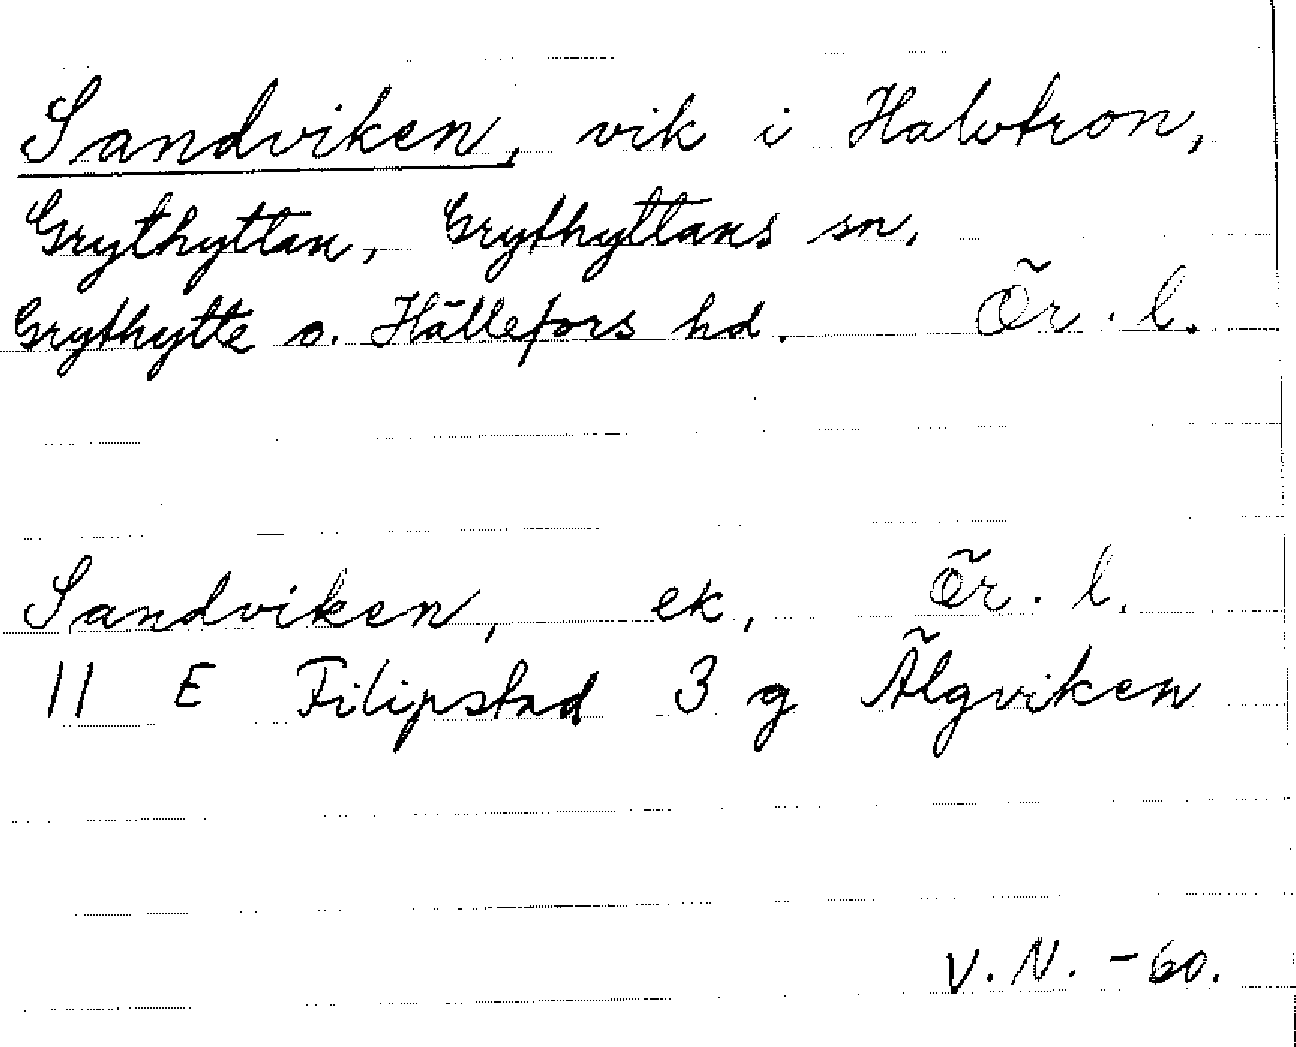 Sandviken, vik i Halvtron,
Grythyttan, Grythyttans sn,
Grythytte o. Hällefors hd. Ör. l.
Sandviken, ek, Ör. l.
11 E Filipstad 3 g Älgviken
V. N. -60.